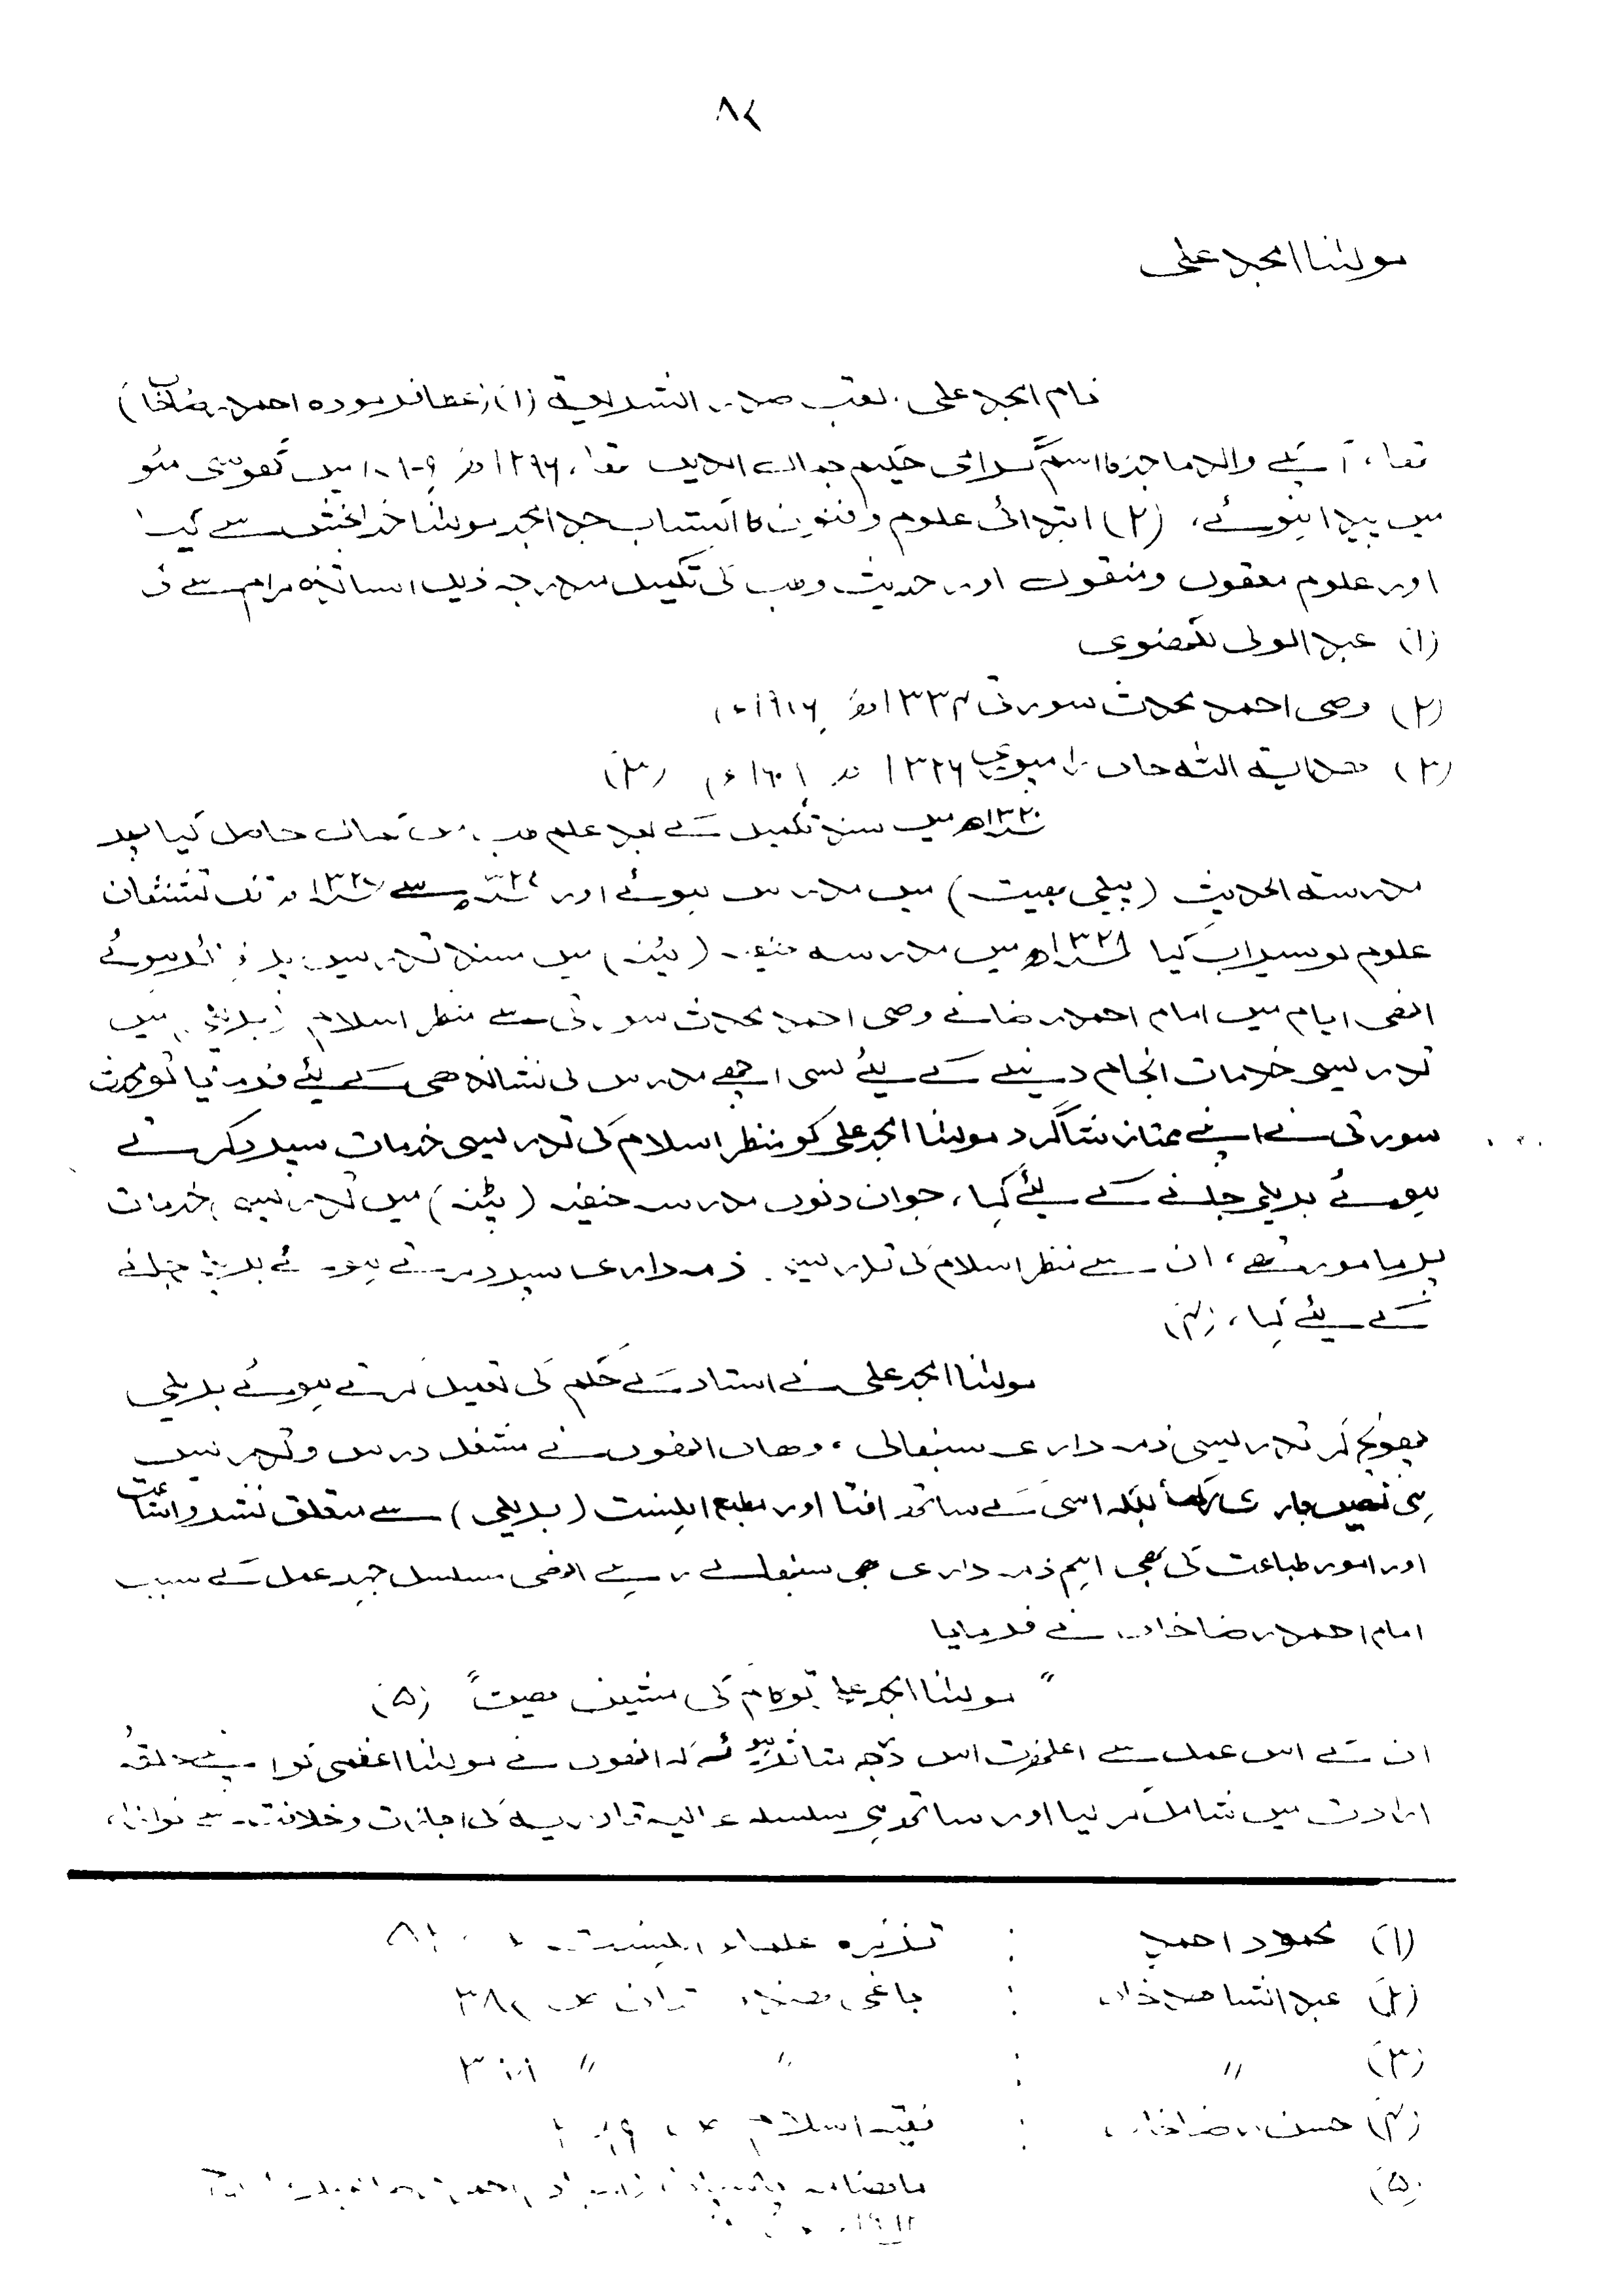 ۸۲
مولٰنا امجد علی
نام امجد علی. لقب صدر الشریعۃ (۱) (عطا فرمودہ احمد رضا خاں)
تھا، آپکے والد ماجد کا اسم گرامی حکیم جمال الدین تھا، ۱۲۹۶ھ میں گھوسی مئو
میں پیدا ہوئے، (۲) ابتدائی علوم و فنون کا اکتساب جد امجد مولٰنا خدا بخش سے کیا
اور علوم معقول و منقول اور حدیث و طب کی تکمیل مندرجہ ذیل اساتذہ کرام سے کی
(۱) عبد الولی لکھنوی
(۲) وصی احمد محدث سورتی ۱۳۳۴ھ / ۱۹۱۶ء
(۳) ھدایۃ اللہ خاں رامپوری ۱۳۲۶ھ (۳)
۱۳۲۰ھ میں سند تکمیل کے بعد علم طب میں کمال حاصل کیا بعد
مدرستہ الحدیث (پیلی بھیت) میں مدرس ہوئے اور ۱۳۲۴ سے ۱۳۲۷ھ تک تشنگان
علوم کو سیراب کیا ۱۳۲۸ھ میں مدرسہ حنفیہ (پٹنہ) میں مسند تدریس پر فائز ہوئے
انھی ایام میں امام احمد رضا نے وصی احمد محدث سورتی سے منظر اسلام (بریلی) میں
تدریسی خدمات انجام دینے کے لیئے کسی اچھے مدرس کی نشاندھی کے لیئے فرمایا تو محدث
سورتی نے اپنے ممتاز شاگرد مولٰنا امجد علی کو منظر اسلام کی تدریسی خدمات سپرد کرتے
ہوئے بریلی جانے کے لیئے کہا، جو ان دنوں مدرسہ حنفیہ (پٹنہ) میں تدریسی خدمات
پر مامور تھے، ان سے منظر اسلام کی تدریسی ذمہ داری سپرد کرتے ہوئے بریلی جانے
کے لیئے کہا، (۴)
مولٰنا امجد علی نے استاد کے حکم کی تعمیل کرتے ہوئے بریلی
پھونچ کر تدریسی ذمہ داری سنبھالی، وھاں انھوں نے مشغلہ درس و تدریس
ہی نھیں جاری رکھا بلکہ اسی کے ساتھ افتا اور مطبع اہلسنت (بریلی) سے متعلق نشر و اشاعت
اور امور طباعت کی بھی اہم ذمہ داری بھی سنبھالے رہے انھی مسلسل جہد عمل کے سبب
امام احمد رضا خاں نے فرمایا
" مولٰنا امجد علی تو کام کی مشین ھیں" (۵)
ان کے اس عمل سے اعلحضرت اس درجہ متاثر ہوئے کہ انھوں نے مولٰنا اعظمی کو اپنے حلقہ
ارادت میں شامل کر لیا اور ساتھ ہی سلسلہ عالیہ قادریہ کی اجازت و خلافت سے نوازا،
(۱) محمود احمد : تذکرہ علماء اہلسنت
(۲) عبد الشاھد خاں : باغی ھندوستان ص ۳۸۲
(۳) " : " "
(۴) حسن رضا خاں : فقیہ اسلام ص
(۵) ماھنامہ پاسبان